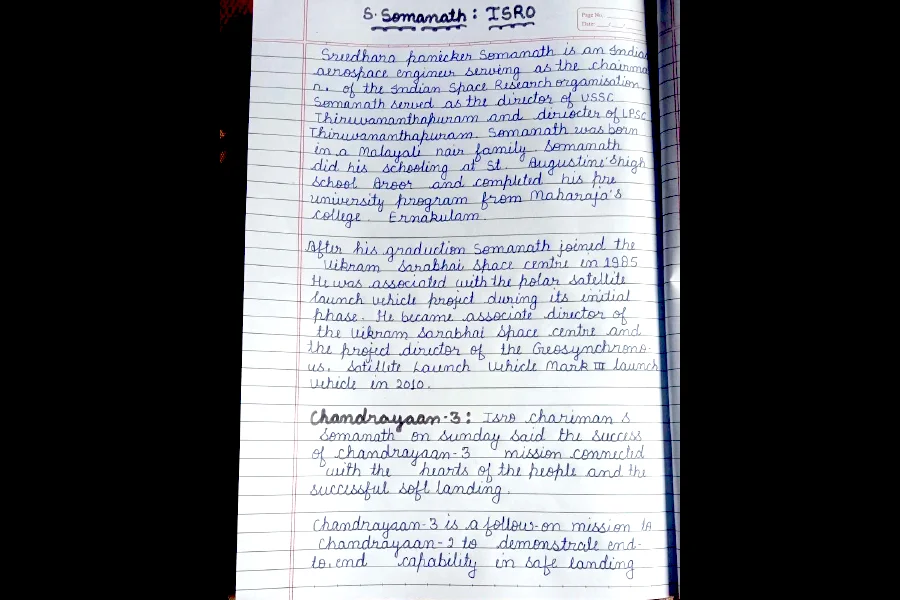 S. Somanath : ISRO
Page No.
Date
Sreedhara panicker Somanath is an Indian
aerospace engineer serving as the chairma
n. of the Indian Space Research organisation.
Somanath served as the director of USSC
Thiruvananthapuram and diriocter of LPSC
Thiruvananthapuram. Somanath was born
in a Malayali nair family. Somanath
did his schooling at St. Augustine's high
school Aroor and completed his pre
university program from Maharaja's
college. Ernakulam.
After his graduction Somanath joined the
Vikram Sarabhai Space centre in 1985
He was associated with the polar satellite
launch vehicle project during its initial
phase. He became associate director of
the Vikram Sarabhai Space centre and
the project director of the Geosynchrono-
us. Satillite Launch Vehicle Mark III launch
vehicle in 2010.
Chandrayaan-3 : Isro chariman S
Somanath on sunday said the success
of chandrayaan-3 mission connected
with the hearts of the people and the
successful soft landing.
Chandrayaan-3 is a follow-on mission to
chandrayaan-2 to demonstrate end-
to.end capability in safe landing